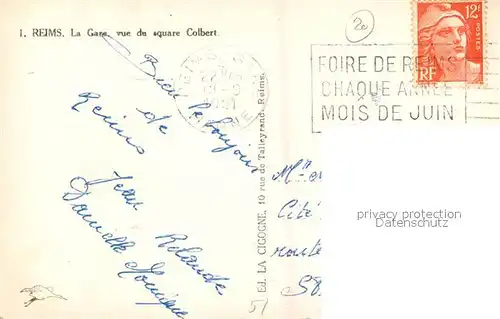 1. REIMS. La Gare, vue du square Colbert.
20
12F
POSTES
RF
FOIRE DE REIMS
CHAQUE ANNÉE
MOIS DE JUIN
Bien le bonjour
de
Reims
Jean Rolande
Danielle Monique
ED. LA CIGOGNE, 10 rue de Talleyrand, Reims.
51
Cité
route
privacy protection
Datenschutz